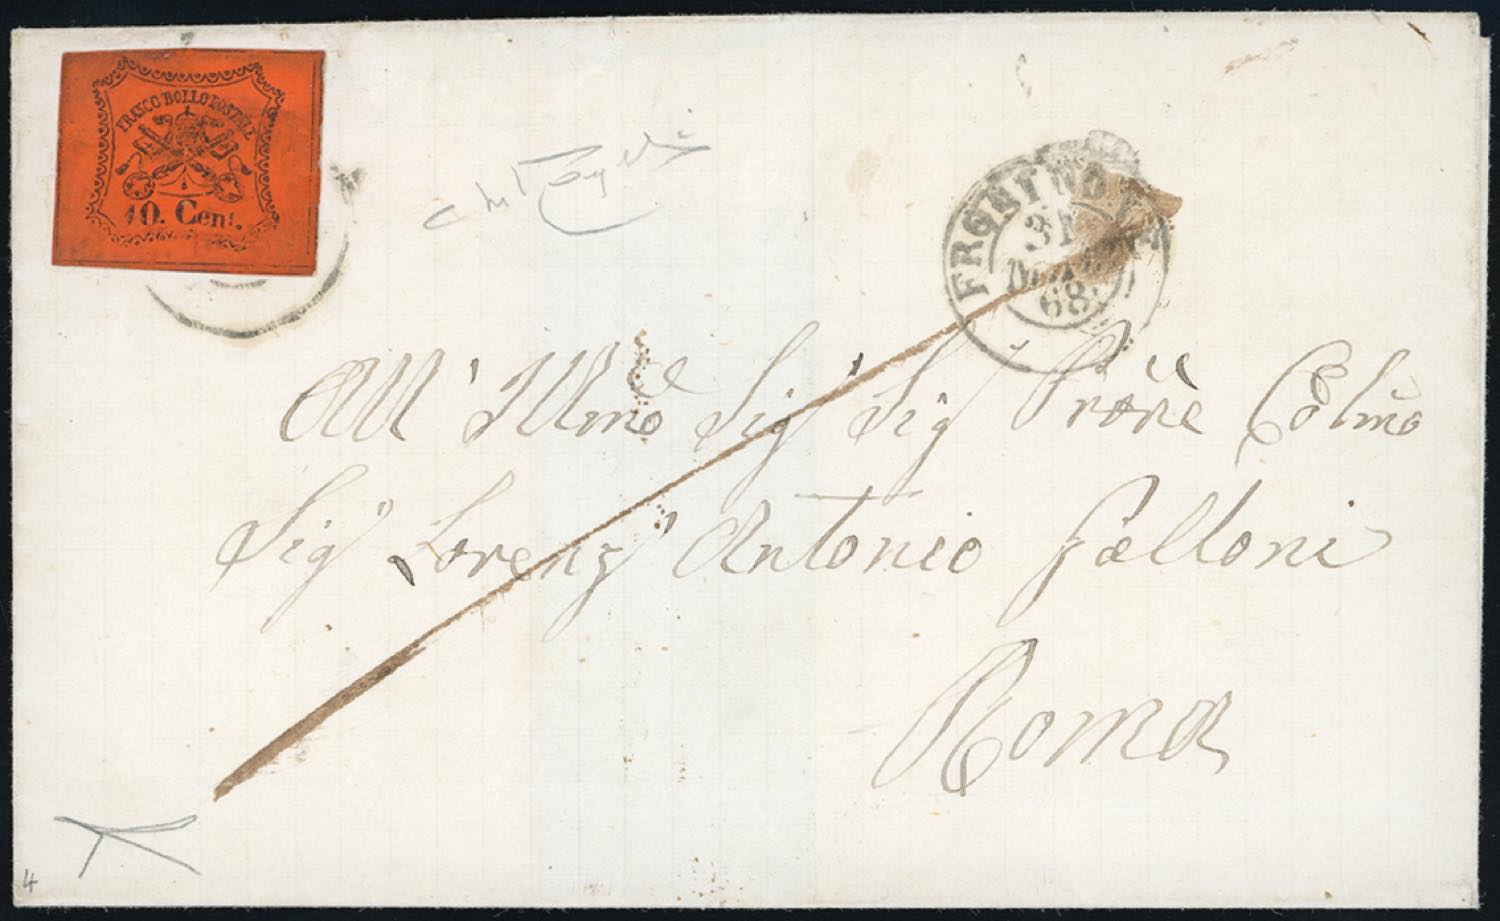 FRANCO BOLLO POSTALE
10. Cent.
FROSINONE
68
All' Illmo Sig Sig Prõne Colmo
Sig Lorenz Antonio Galloni
Roma
4